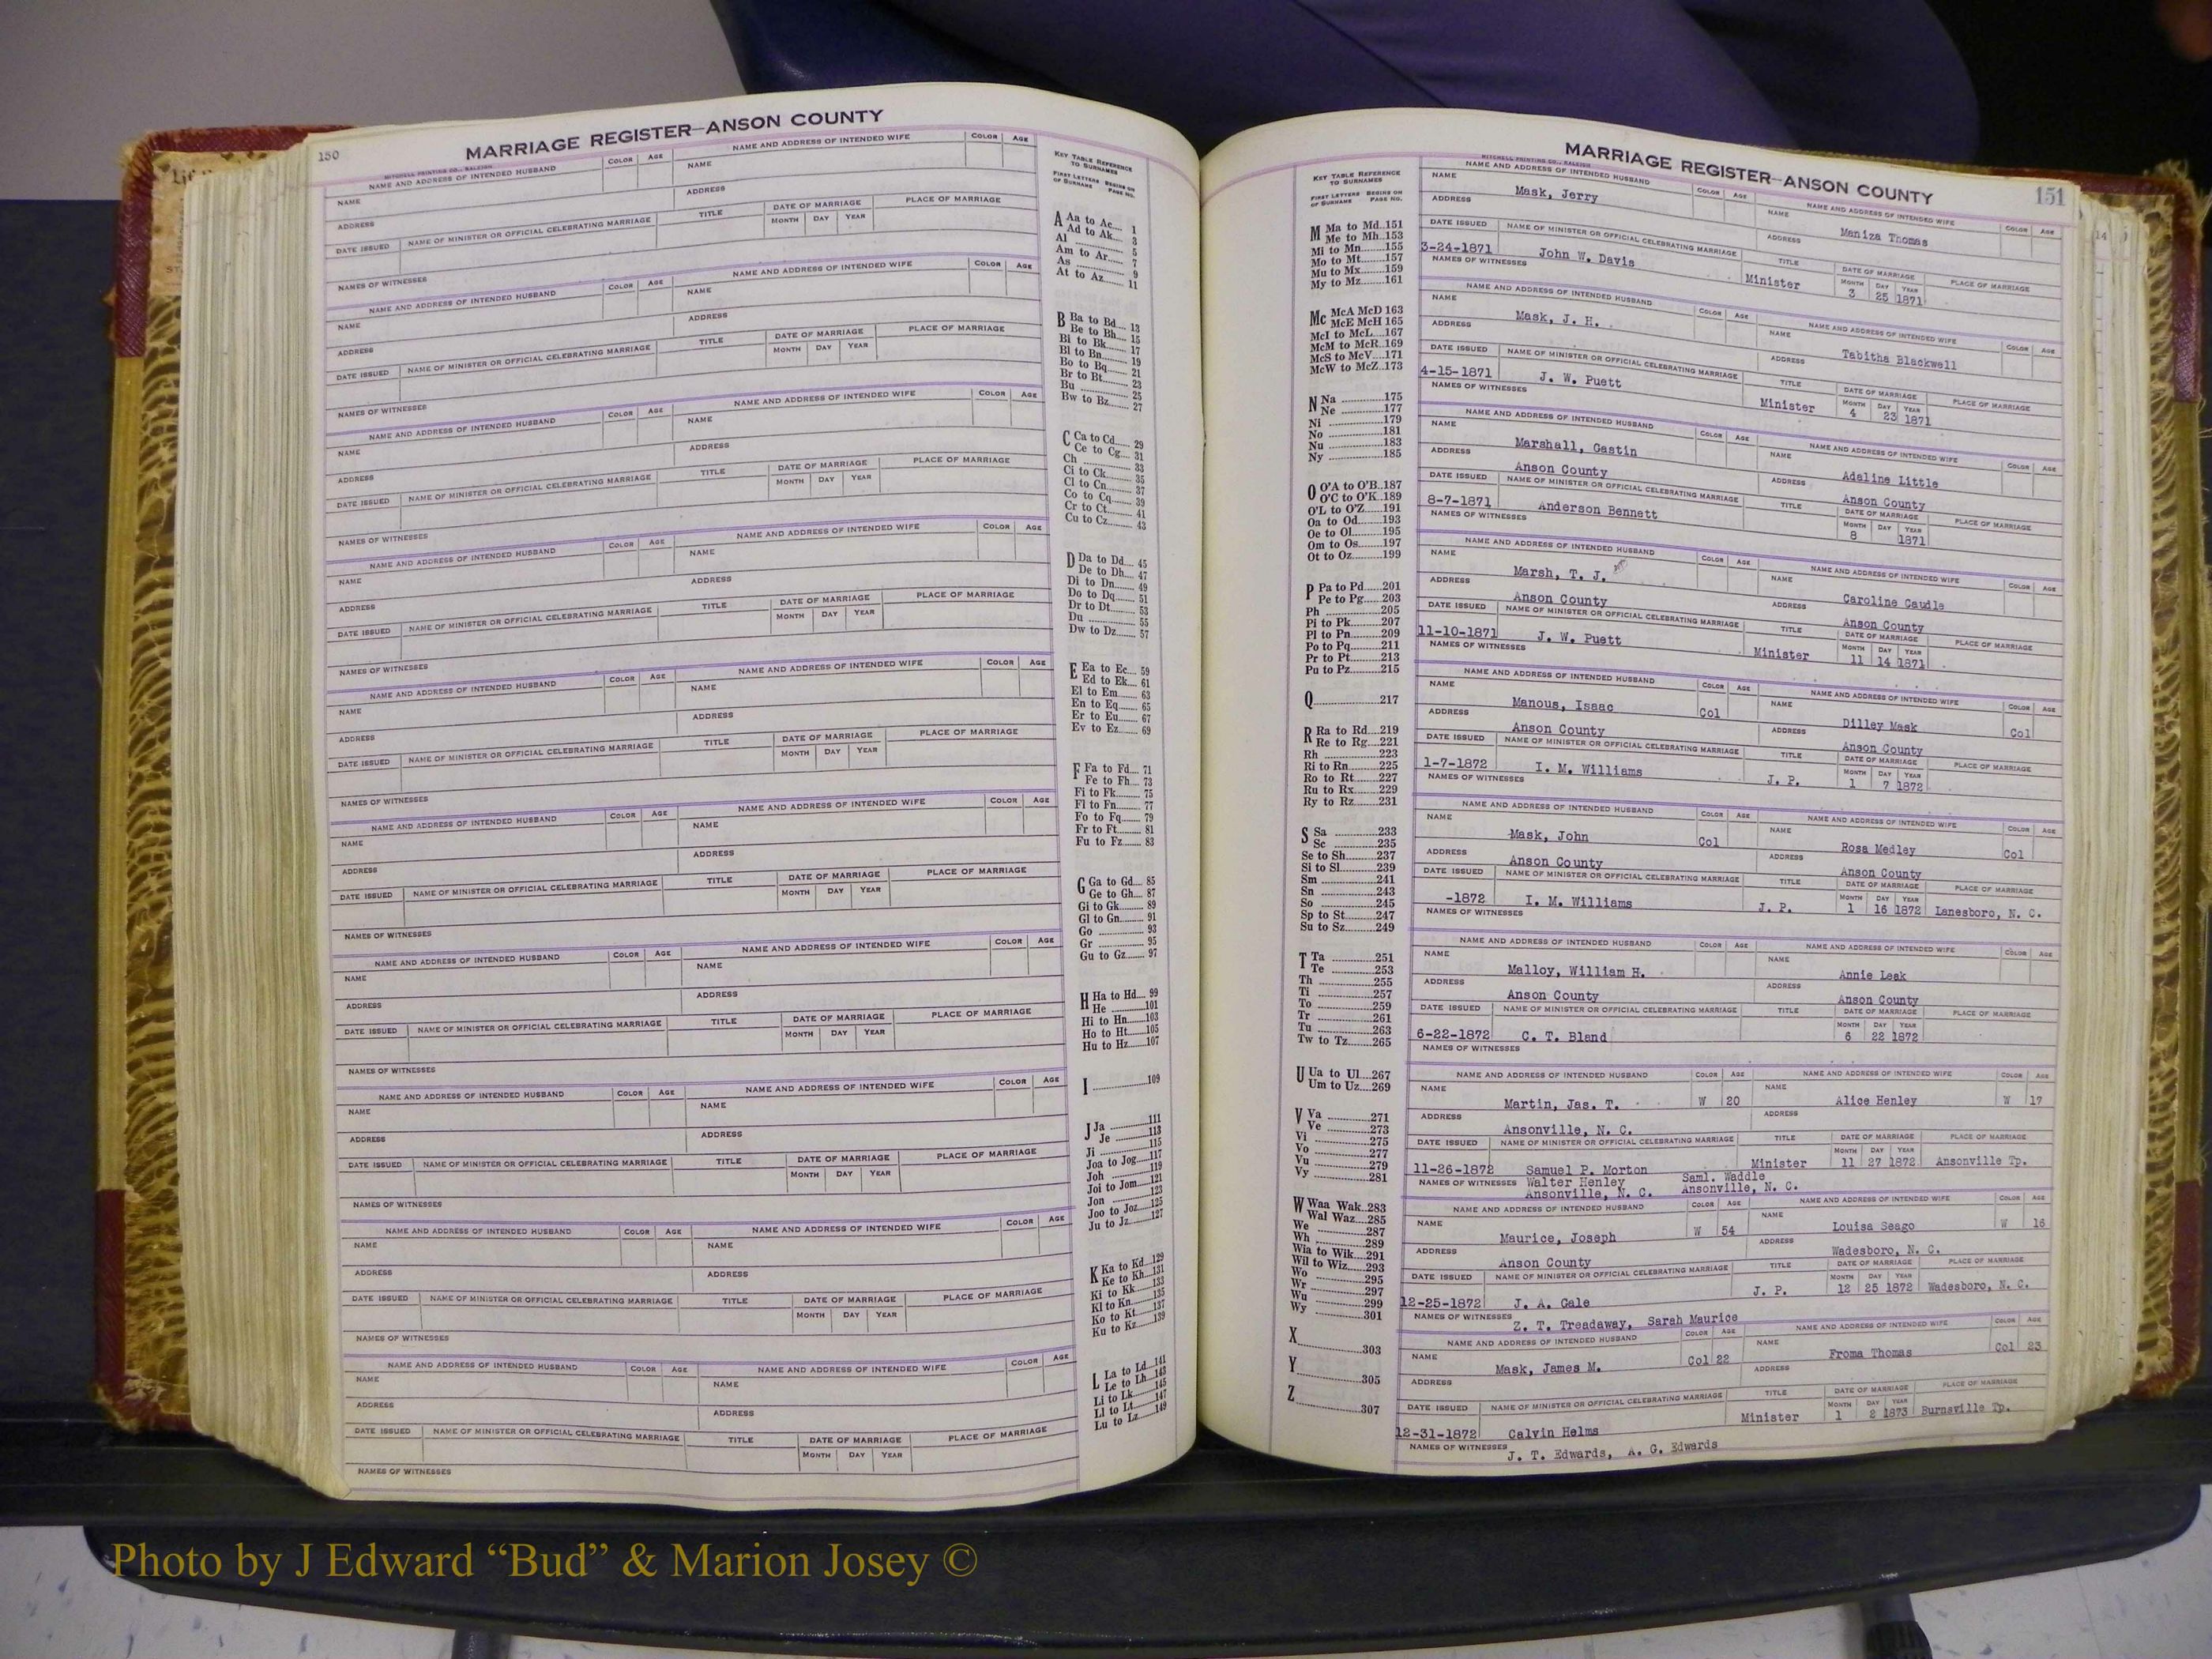 150
MARRIAGE REGISTER—ANSON COUNTY
MITCHELL PRINTING CO., RALEIGH
NAME AND ADDRESS OF INTENDED HUSBAND COLOR AGE NAME AND ADDRESS OF INTENDED WIFE COLOR AGE
NAME NAME
ADDRESS ADDRESS
DATE ISSUED NAME OF MINISTER OR OFFICIAL CELEBRATING MARRIAGE TITLE DATE OF MARRIAGE PLACE OF MARRIAGE
MONTH DAY YEAR
NAMES OF WITNESSES
NAME AND ADDRESS OF INTENDED HUSBAND COLOR AGE NAME AND ADDRESS OF INTENDED WIFE COLOR AGE
NAME NAME
ADDRESS ADDRESS
DATE ISSUED NAME OF MINISTER OR OFFICIAL CELEBRATING MARRIAGE TITLE DATE OF MARRIAGE PLACE OF MARRIAGE
MONTH DAY YEAR
NAMES OF WITNESSES
NAME AND ADDRESS OF INTENDED HUSBAND COLOR AGE NAME AND ADDRESS OF INTENDED WIFE COLOR AGE
NAME NAME
ADDRESS ADDRESS
DATE ISSUED NAME OF MINISTER OR OFFICIAL CELEBRATING MARRIAGE TITLE DATE OF MARRIAGE PLACE OF MARRIAGE
MONTH DAY YEAR
NAMES OF WITNESSES
NAME AND ADDRESS OF INTENDED HUSBAND COLOR AGE NAME AND ADDRESS OF INTENDED WIFE COLOR AGE
NAME NAME
ADDRESS ADDRESS
DATE ISSUED NAME OF MINISTER OR OFFICIAL CELEBRATING MARRIAGE TITLE DATE OF MARRIAGE PLACE OF MARRIAGE
MONTH DAY YEAR
NAMES OF WITNESSES
NAME AND ADDRESS OF INTENDED HUSBAND COLOR AGE NAME AND ADDRESS OF INTENDED WIFE COLOR AGE
NAME NAME
ADDRESS ADDRESS
DATE ISSUED NAME OF MINISTER OR OFFICIAL CELEBRATING MARRIAGE TITLE DATE OF MARRIAGE PLACE OF MARRIAGE
MONTH DAY YEAR
NAMES OF WITNESSES
NAME AND ADDRESS OF INTENDED HUSBAND COLOR AGE NAME AND ADDRESS OF INTENDED WIFE COLOR AGE
NAME NAME
ADDRESS ADDRESS
DATE ISSUED NAME OF MINISTER OR OFFICIAL CELEBRATING MARRIAGE TITLE DATE OF MARRIAGE PLACE OF MARRIAGE
MONTH DAY YEAR
NAMES OF WITNESSES
NAME AND ADDRESS OF INTENDED HUSBAND COLOR AGE NAME AND ADDRESS OF INTENDED WIFE COLOR AGE
NAME NAME
ADDRESS ADDRESS
DATE ISSUED NAME OF MINISTER OR OFFICIAL CELEBRATING MARRIAGE TITLE DATE OF MARRIAGE PLACE OF MARRIAGE
MONTH DAY YEAR
NAMES OF WITNESSES
NAME AND ADDRESS OF INTENDED HUSBAND COLOR AGE NAME AND ADDRESS OF INTENDED WIFE COLOR AGE
NAME NAME
ADDRESS ADDRESS
DATE ISSUED NAME OF MINISTER OR OFFICIAL CELEBRATING MARRIAGE TITLE DATE OF MARRIAGE PLACE OF MARRIAGE
MONTH DAY YEAR
NAMES OF WITNESSES
NAME AND ADDRESS OF INTENDED HUSBAND COLOR AGE NAME AND ADDRESS OF INTENDED WIFE COLOR AGE
NAME NAME
ADDRESS ADDRESS
DATE ISSUED NAME OF MINISTER OR OFFICIAL CELEBRATING MARRIAGE TITLE DATE OF MARRIAGE PLACE OF MARRIAGE
MONTH DAY YEAR
NAMES OF WITNESSES
NAME AND ADDRESS OF INTENDED HUSBAND COLOR AGE NAME AND ADDRESS OF INTENDED WIFE COLOR AGE
NAME NAME
ADDRESS ADDRESS
DATE ISSUED NAME OF MINISTER OR OFFICIAL CELEBRATING MARRIAGE TITLE DATE OF MARRIAGE PLACE OF MARRIAGE
MONTH DAY YEAR
NAMES OF WITNESSES
KEY TABLE REFERENCE
TO SURNAMES
FIRST LETTERS BEGINS ON
OF SURNAME PAGE NO.
A Aa to Ac.... 1
Ad to Ak.... 3
Al .... 5
Am to Ar.... 7
As .... 9
At to Az.... 11
B Ba to Bd.... 13
Be to Bh.... 15
Bi to Bk.... 17
Bl to Bn.... 19
Bo to Bq.... 21
Br to Bt.... 23
Bu .... 25
Bw to Bz.... 27
C Ca to Cd.... 29
Ce to Cg.... 31
Ch .... 33
Ci to Ck.... 35
Cl to Cn.... 37
Co to Cq.... 39
Cr to Ct.... 41
Cu to Cz.... 43
D Da to Dd.... 45
De to Dh.... 47
Di to Dn.... 49
Do to Dq.... 51
Dr to Dt.... 53
Du .... 55
Dw to Dz.... 57
E Ea to Ec.... 59
Ed to Ek.... 61
El to Em.... 63
En to Eq.... 65
Er to Eu.... 67
Ev to Ez.... 69
F Fa to Fd.... 71
Fe to Fh.... 73
Fi to Fk.... 75
Fl to Fn.... 77
Fo to Fq.... 79
Fr to Ft.... 81
Fu to Fz.... 83
G Ga to Gd.... 85
Ge to Gh.... 87
Gi to Gk.... 89
Gl to Gn.... 91
Go .... 93
Gr .... 95
Gu to Gz.... 97
H Ha to Hd.... 99
He ....101
Hi to Hn....103
Ho to Ht....105
Hu to Hz....107
I ....109
J Ja ....111
Je ....113
Ji ....115
Joa to Jog....117
Joh ....119
Joi to Jom....121
Jon ....123
Joo to Joz....125
Ju to Jz....127
K Ka to Kd....129
Ke to Kh....131
Ki to Kk....133
Kl to Kn....135
Ko to Kt....137
Ku to Kz....139
L La to Ld....141
Le to Lh....143
Li to Lk....145
Ll to Lt....147
Lu to Lz....149
KEY TABLE REFERENCE
TO SURNAMES
FIRST LETTERS BEGINS ON
OF SURNAME PAGE NO.
M Ma to Md..151
Me to Mh..153
Mi to Mn....155
Mo to Mt....157
Mu to Mx....159
My to Mz....161
Mc McA McD 163
McE McH 165
McI to McL....167
McM to McR..169
McS to McV....171
McW to McZ..173
N Na ....175
Ne ....177
Ni ....179
No ....181
Nu ....183
Ny ....185
O O'A to O'B..187
O'C to O'K..189
O'L to O'Z....191
Oa to Od....193
Oe to Ol....195
Om to Os....197
Ot to Oz....199
P Pa to Pd....201
Pe to Pg....203
Ph ....205
Pi to Pk....207
Pl to Pn....209
Po to Pq....211
Pr to Pt....213
Pu to Pz....215
Q ....217
R Ra to Rd....219
Re to Rg....221
Rh ....223
Ri to Rn....225
Ro to Rt....227
Ru to Rx....229
Ry to Rz....231
S Sa ....233
Sc ....235
Se to Sh....237
Si to Sl....239
Sm ....241
Sn ....243
So ....245
Sp to St....247
Su to Sz....249
T Ta ....251
Te ....253
Th ....255
Ti ....257
To ....259
Tr ....261
Tu ....263
Tw to Tz....265
U Ua to Ul....267
Um to Uz....269
V Va ....271
Ve ....273
Vi ....275
Vo ....277
Vu ....279
Vy ....281
W Waa Wak..283
Wal Waz....285
We ....287
Wh ....289
Wia to Wik....291
Wil to Wiz....293
Wo ....295
Wr ....297
Wu ....299
Wy ....301
X ....303
Y ....305
Z ....307
MARRIAGE REGISTER—ANSON COUNTY 151
MITCHELL PRINTING CO., RALEIGH
NAME AND ADDRESS OF INTENDED HUSBAND COLOR AGE NAME AND ADDRESS OF INTENDED WIFE COLOR AGE
NAME Mask, Jerry NAME Maniza Thomas
ADDRESS ADDRESS
DATE ISSUED NAME OF MINISTER OR OFFICIAL CELEBRATING MARRIAGE TITLE DATE OF MARRIAGE PLACE OF MARRIAGE
MONTH DAY YEAR
3-24-1871 John W. Davis Minister 3 25 1871
NAMES OF WITNESSES
NAME AND ADDRESS OF INTENDED HUSBAND COLOR AGE NAME AND ADDRESS OF INTENDED WIFE COLOR AGE
NAME Mask, J. H. NAME Tabitha Blackwell
ADDRESS ADDRESS
DATE ISSUED NAME OF MINISTER OR OFFICIAL CELEBRATING MARRIAGE TITLE DATE OF MARRIAGE PLACE OF MARRIAGE
MONTH DAY YEAR
4-15-1871 J. W. Puett Minister 4 23 1871
NAMES OF WITNESSES
NAME AND ADDRESS OF INTENDED HUSBAND COLOR AGE NAME AND ADDRESS OF INTENDED WIFE COLOR AGE
NAME Marshall, Gastin NAME Adaline Little
ADDRESS Anson County ADDRESS Anson County
DATE ISSUED NAME OF MINISTER OR OFFICIAL CELEBRATING MARRIAGE TITLE DATE OF MARRIAGE PLACE OF MARRIAGE
MONTH DAY YEAR
8-7-1871 Anderson Bennett 8 1871
NAMES OF WITNESSES
NAME AND ADDRESS OF INTENDED HUSBAND COLOR AGE NAME AND ADDRESS OF INTENDED WIFE COLOR AGE
NAME Marsh, T. J. NAME Caroline Caudle
ADDRESS Anson County ADDRESS Anson County
DATE ISSUED NAME OF MINISTER OR OFFICIAL CELEBRATING MARRIAGE TITLE DATE OF MARRIAGE PLACE OF MARRIAGE
MONTH DAY YEAR
11-10-1871 J. W. Puett Minister 11 14 1871
NAMES OF WITNESSES
NAME AND ADDRESS OF INTENDED HUSBAND COLOR AGE NAME AND ADDRESS OF INTENDED WIFE COLOR AGE
NAME Manous, Isaac Col NAME Dilley Mask Col
ADDRESS Anson County ADDRESS Anson County
DATE ISSUED NAME OF MINISTER OR OFFICIAL CELEBRATING MARRIAGE TITLE DATE OF MARRIAGE PLACE OF MARRIAGE
MONTH DAY YEAR
1-7-1872 I. M. Williams J. P. 1 7 1872
NAMES OF WITNESSES
NAME AND ADDRESS OF INTENDED HUSBAND COLOR AGE NAME AND ADDRESS OF INTENDED WIFE COLOR AGE
NAME Mask, John Col NAME Rosa Medley Col
ADDRESS Anson County ADDRESS Anson County
DATE ISSUED NAME OF MINISTER OR OFFICIAL CELEBRATING MARRIAGE TITLE DATE OF MARRIAGE PLACE OF MARRIAGE
MONTH DAY YEAR
-1872 I. M. Williams J. P. 1 16 1872 Lanesboro, N. C.
NAMES OF WITNESSES
NAME AND ADDRESS OF INTENDED HUSBAND COLOR AGE NAME AND ADDRESS OF INTENDED WIFE COLOR AGE
NAME Malloy, William H. NAME Annie Leak
ADDRESS Anson County ADDRESS Anson County
DATE ISSUED NAME OF MINISTER OR OFFICIAL CELEBRATING MARRIAGE TITLE DATE OF MARRIAGE PLACE OF MARRIAGE
MONTH DAY YEAR
6-22-1872 C. T. Bland 6 22 1872
NAMES OF WITNESSES
NAME AND ADDRESS OF INTENDED HUSBAND COLOR AGE NAME AND ADDRESS OF INTENDED WIFE COLOR AGE
NAME Martin, Jas. T. W 20 NAME Alice Henley W 17
ADDRESS Ansonville, N. C. ADDRESS
DATE ISSUED NAME OF MINISTER OR OFFICIAL CELEBRATING MARRIAGE TITLE DATE OF MARRIAGE PLACE OF MARRIAGE
MONTH DAY YEAR
11-26-1872 Samuel P. Morton Minister 11 27 1872 Ansonville Tp.
NAMES OF WITNESSES Walter Henley Saml. Waddle
Ansonville, N. C. Ansonville, N. C.
NAME AND ADDRESS OF INTENDED HUSBAND COLOR AGE NAME AND ADDRESS OF INTENDED WIFE COLOR AGE
NAME Maurice, Joseph W 54 NAME Louisa Seago W 16
ADDRESS Anson County ADDRESS Wadesboro, N. C.
DATE ISSUED NAME OF MINISTER OR OFFICIAL CELEBRATING MARRIAGE TITLE DATE OF MARRIAGE PLACE OF MARRIAGE
MONTH DAY YEAR
12-25-1872 J. A. Gale J. P. 12 25 1872 Wadesboro, N. C.
NAMES OF WITNESSES Z. T. Treadaway, Sarah Maurice
NAME AND ADDRESS OF INTENDED HUSBAND COLOR AGE NAME AND ADDRESS OF INTENDED WIFE COLOR AGE
NAME Mask, James M. Col 22 NAME Froma Thomas Col 23
ADDRESS ADDRESS
DATE ISSUED NAME OF MINISTER OR OFFICIAL CELEBRATING MARRIAGE TITLE DATE OF MARRIAGE PLACE OF MARRIAGE
MONTH DAY YEAR
12-31-1872 Calvin Helms Minister 1 2 1873 Burnsville Tp.
NAMES OF WITNESSES J. T. Edwards, A. G. Edwards
Photo by J Edward “Bud” & Marion Josey ©